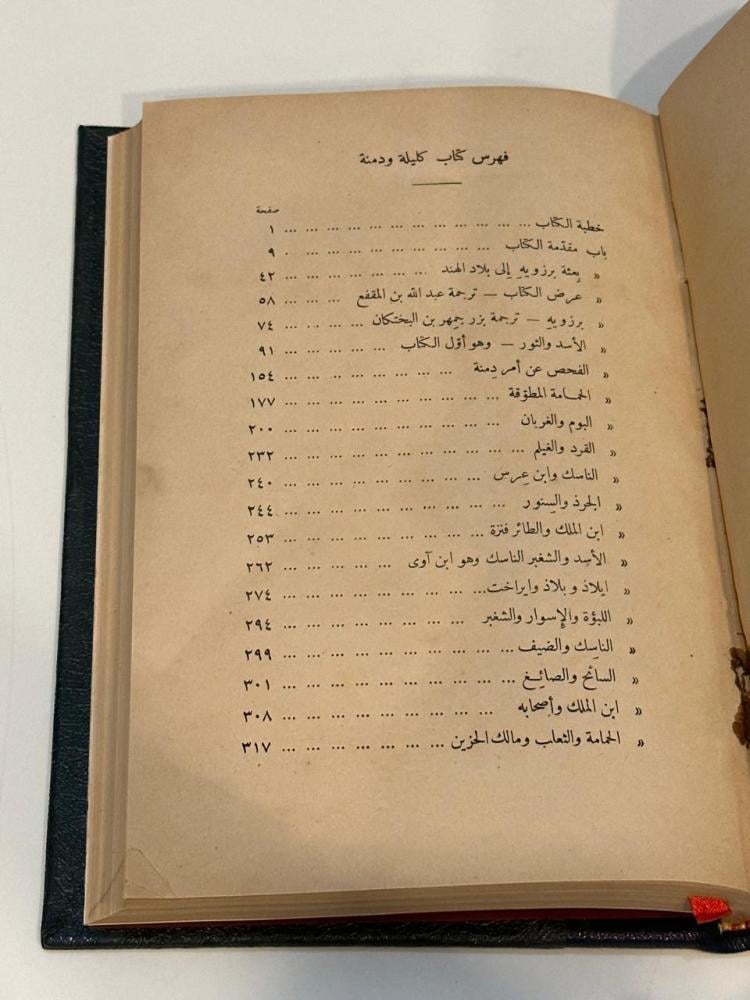 فهرس كتاب كليلة ودمنة
صفحة
خطبة الكتاب ... ... ... ... ... ... ... ... ... ... ... ... ١
باب مقدّمة الكتاب ... ... ... ... ... ... ... ... ... ... ٩
« بعثة برزويه إلى بلاد الهند ... ... ... ... ... ... ... ٤٢
« عرض الكتاب — ترجمة عبد الله بن المقفع ... ... ... ٥٨
« برزويه — ترجمة بزرجمهر بن البختكان ... ... ... ... ٧٤
« الأسد والثور — وهو أوّل الكتاب ... ... ... ... ... ٩١
« الفحص عن أمر دِمنة ... ... ... ... ... ... ... ... ١٥٤
« الحمامة المطوّقة ... ... ... ... ... ... ... ... ... ... ١٧٧
« البوم والغربان ... ... ... ... ... ... ... ... ... ... ٢٠٠
« القرد والغيلم ... ... ... ... ... ... ... ... ... ... ... ٢٣٢
« الناسك وابن عِرس ... ... ... ... ... ... ... ... ... ٢٤٠
« الجرذ والسِنور ... ... ... ... ... ... ... ... ... ... ٢٤٤
« ابن الملك والطائر فنزة ... ... ... ... ... ... ... ... ... ٢٥٣
« الأسد والشغبر الناسك وهو ابن آوى ... ... ... ... ... ٢٦٢
« ايلاذ و بلاذ وايراخت ... ... ... ... ... ... ... ... ... ٢٧٤
« اللبؤة والإسوار والشغبر ... ... ... ... ... ... ... ... ٢٩٤
« الناسِك والضيف ... ... ... ... ... ... ... ... ... ... ٢٩٩
« السائح والصائغ ... ... ... ... ... ... ... ... ... ... ٣٠١
« ابن الملك وأصحابه ... ... ... ... ... ... ... ... ... ٣٠٨
« الحمامة والثعلب ومالك الحزين ... ... ... ... ... ... ... ٣١٧